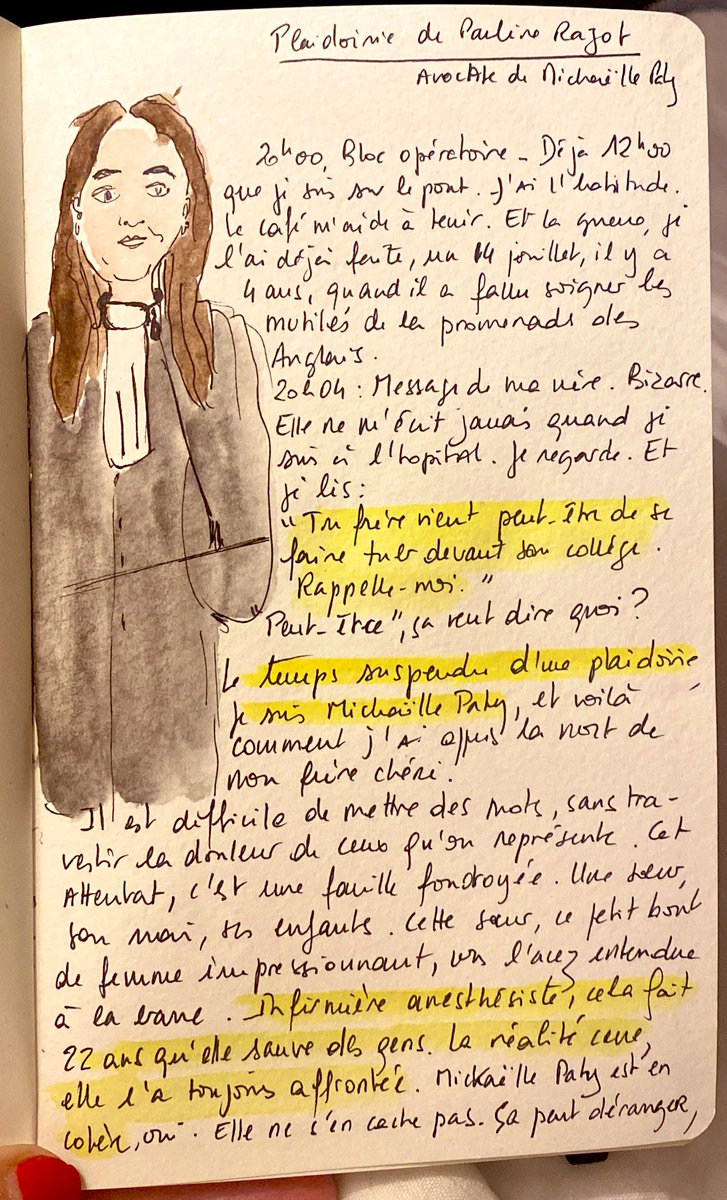 Plaidoirie de Pauline Ragot
Avocate de Mickaëlle Paty
20h00, Bloc opératoire - Déjà 12h00
que je suis sur le pont. J'ai l'habitude.
Le café m'aide à tenir. Et la guerre, je
l'ai déjà faite, un 14 juillet, il y a
4 ans, quand il a fallu soigner les
mutilés de la promenade des
Anglais.
20h04 : Message de ma mère. Bizarre.
Elle ne m'écrit jamais quand je
suis à l'hopital. Je regarde. Et
je lis :
"Ton frère vient peut-être de se
faire tuer devant son collège.
Rappelle-moi."
Peut-être", ça veut dire quoi ?
Le temps suspendu d'une plaidoirie
je suis Mickaëlle Paty, et voilà
comment j'ai appris la mort de
mon frère chéri.
Il est difficile de mettre des mots, sans tra-
vestir la douleur de ceux qu'on représente. Cet
Attentat, c'est une famille foudroyée. Une sœur,
son mari, ses enfants. Cette sœur, ce petit bout
de femme impressionnant, vous l'avez entendue
à la barre. Infirmière anesthésiste, cela fait
22 ans qu'elle sauve des gens. La réalité crue,
elle l'a toujours affrontée. Mickaëlle Paty est en
colère, oui. Elle ne s'en cache pas. Ça peut déranger,